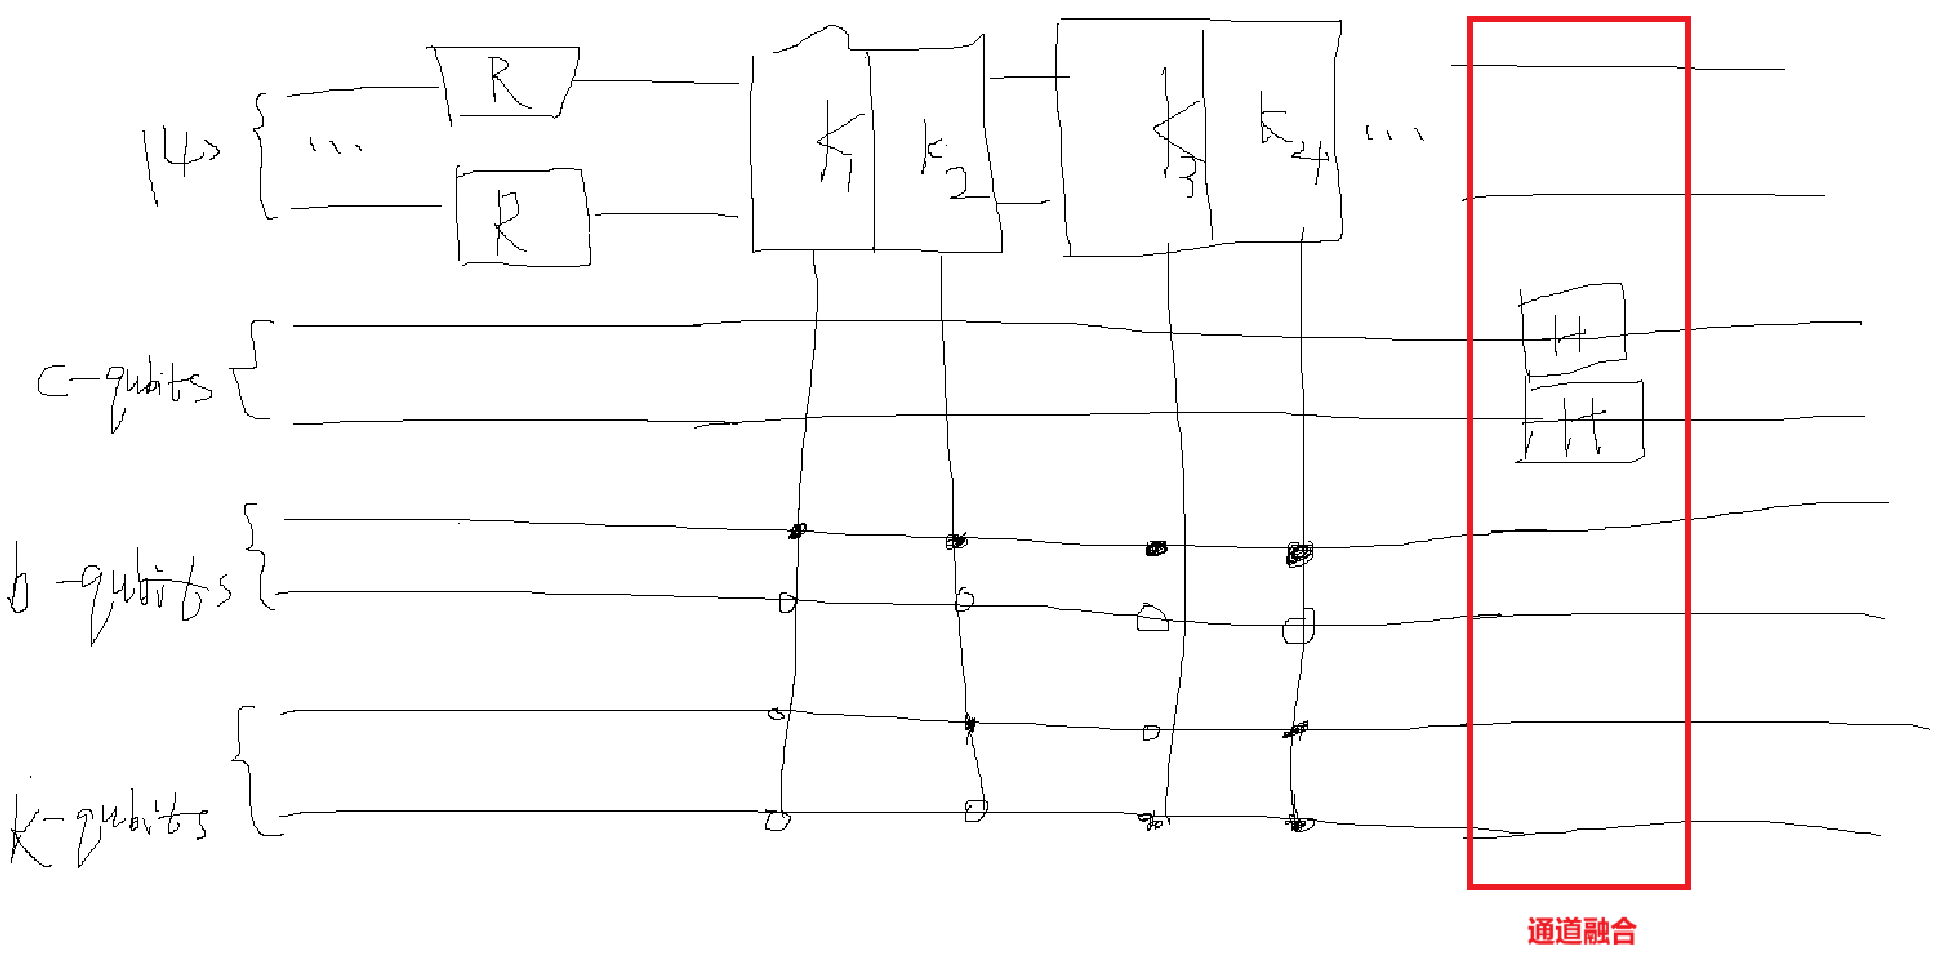 R
|ψ>
...
R
K1
k2
K3
k4
...
c-qubits
H
H
b-qubits
k-qubits
通道融合